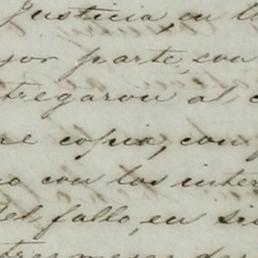 Justicia, en l
yor parte, con
tregaron al c
re copia, con
o con los inter
del fallo, en si
tres meses de